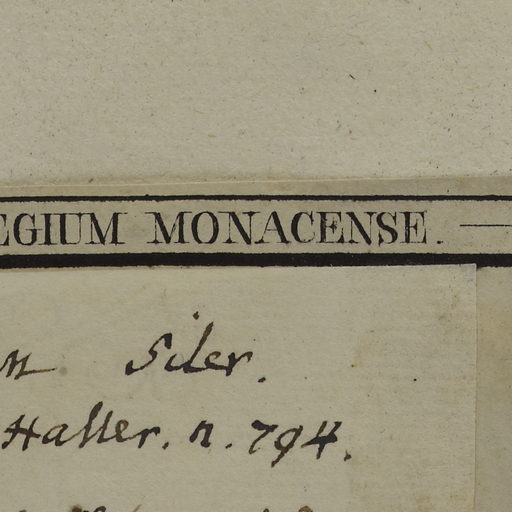 EGIUM MONACENSE. —
m Siler.
Haller. n. 794.